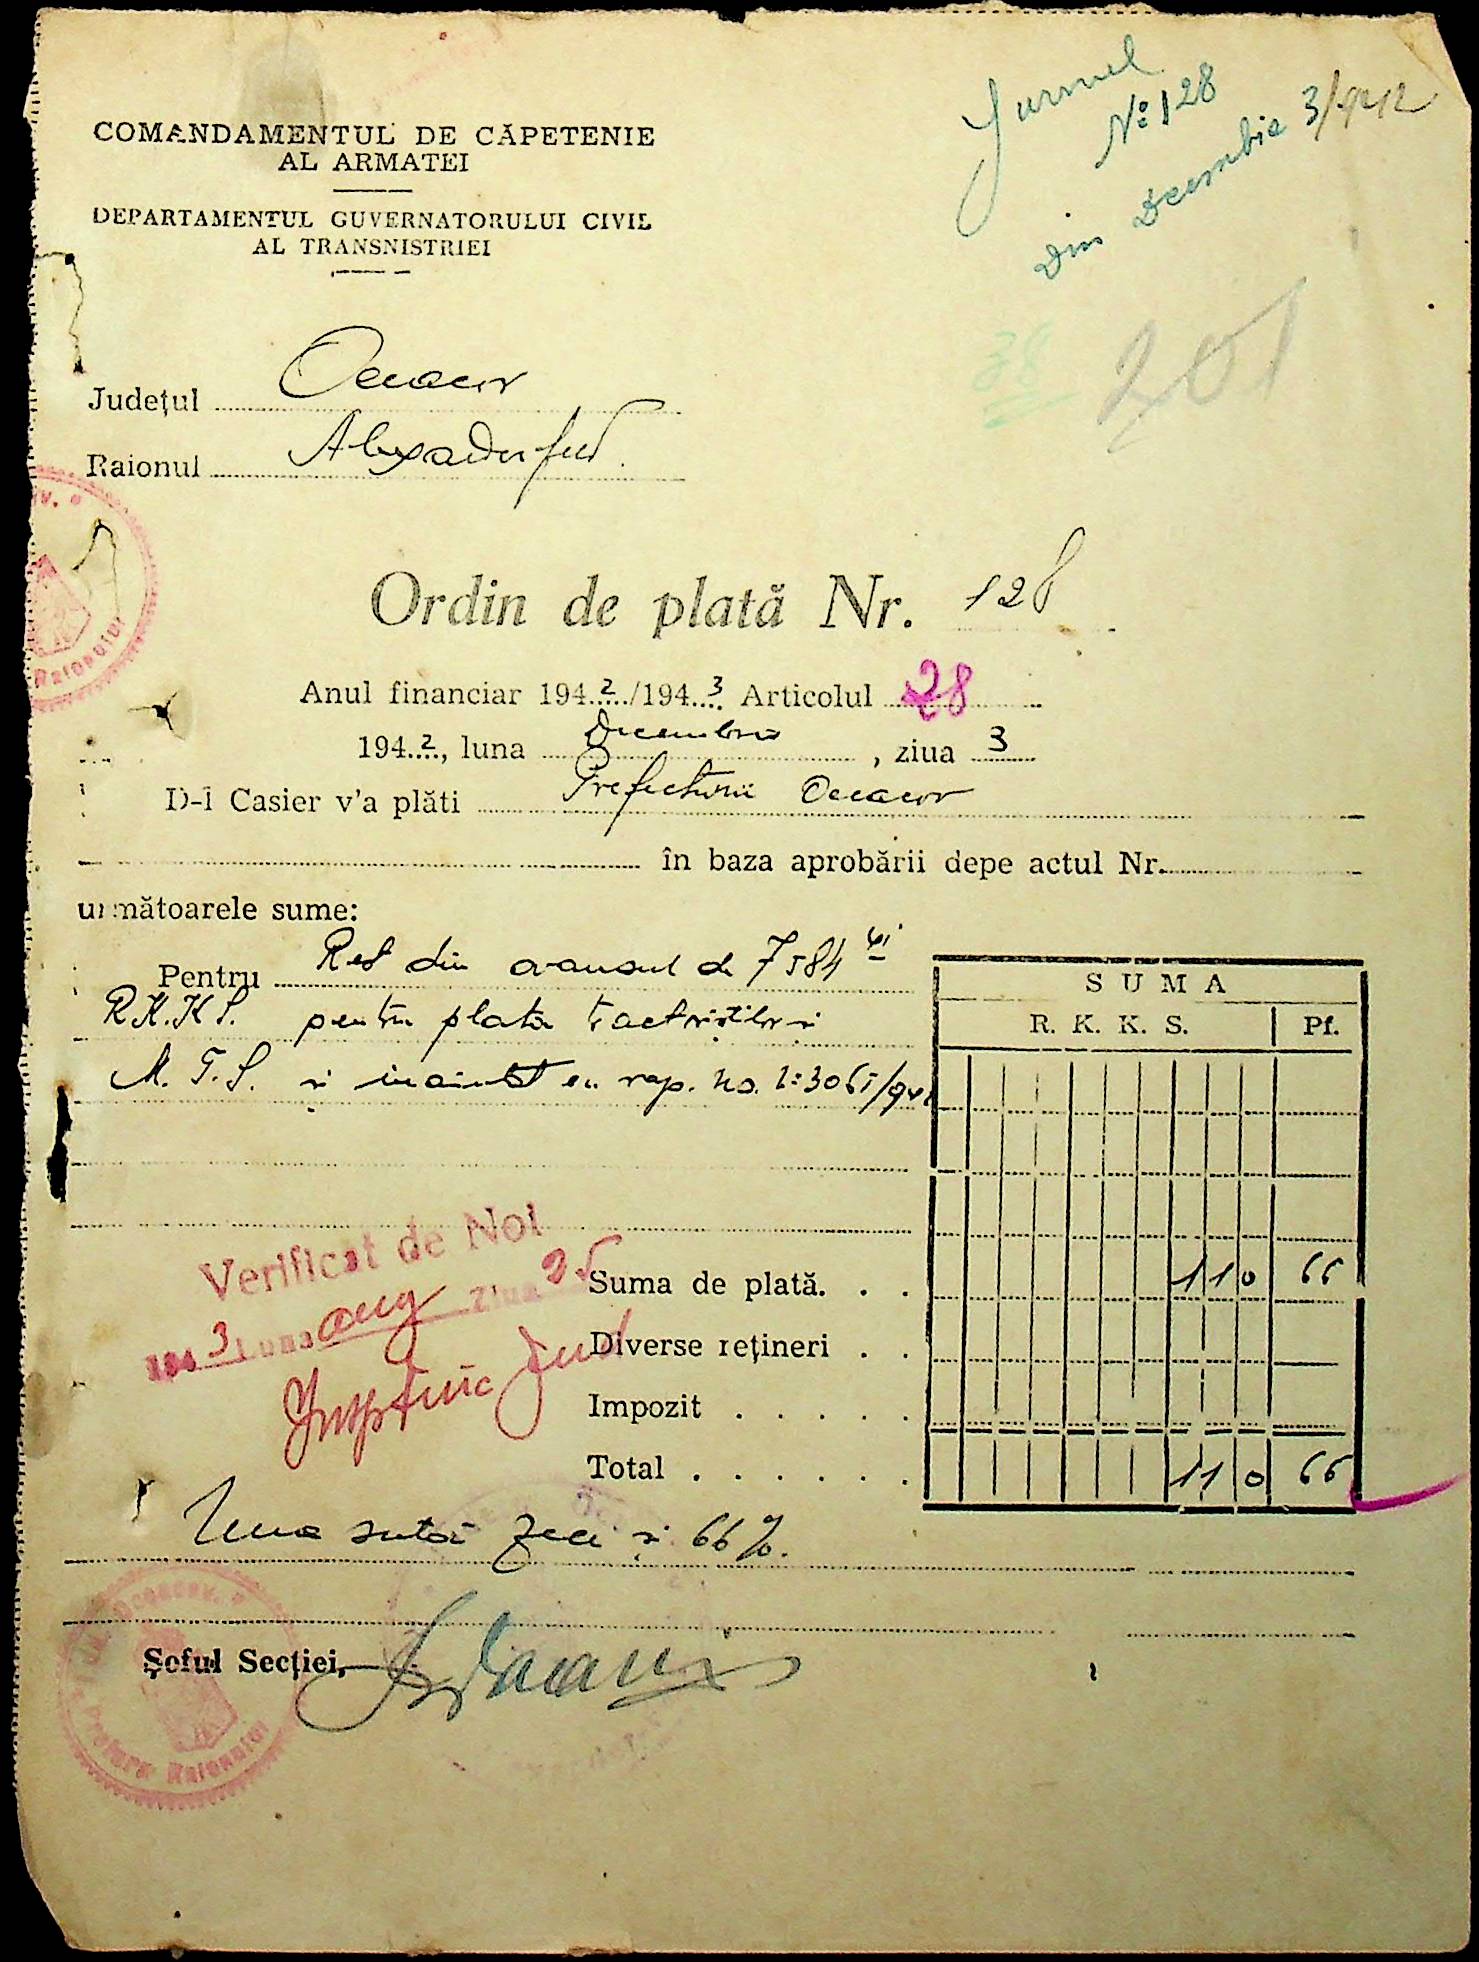 Jurnal
№ 128
din Decembrie 3/942
COMANDAMENTUL DE CĂPETENIE
AL ARMATEI
DEPARTAMENTUL GUVERNATORULUI CIVIL
AL TRANSNISTRIEI
38 201
Județul Oceacov
Raionul
Raionului
Ordin de plată Nr. 128
Anul financiar 1942/1943 Articolul 28
1942, luna Decembrie, ziua 3
D-l Casier v'a plăti Prefecturii Oceacov
în baza aprobării depe actul Nr.
următoarele sume:
Pentru Rest din avansul de 7584
R.K.K.S. pentru plata tractoriștilor
M.T.S. și înaintat cu rap. no.
SUMA
R. K. K. S. Pf.
Verificat de Noi
1943 Luna aug Ziua 25
Suma de plată. . . 110 66
Diverse rețineri . .
Impozit . . . . .
Total . . . . . . 110 66
Una sută zece și 66%.
Șoful Secției,
Pretura Raionului